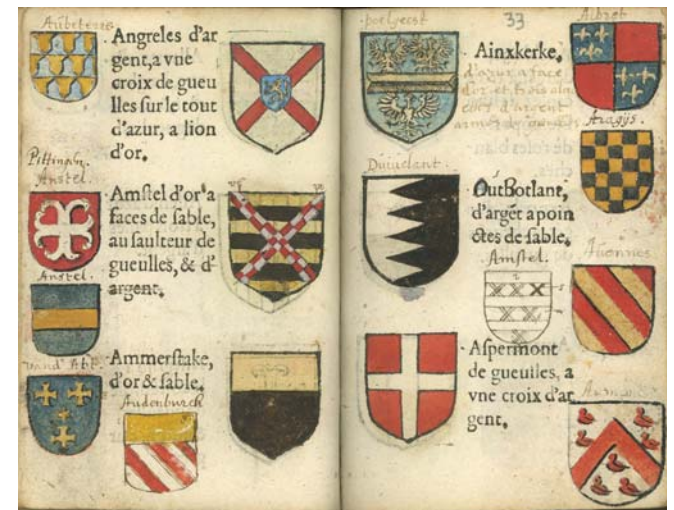 Aubeterre
Angreles d'ar
gent, a vne
croix de gueu
lles sur le tout
d'azur, a lion
d'or.
Anstel.
Amstel d'or a
faces de sable,
au saulteur de
gueulles, & d'
argent.
Anstel.
Ammerstake,
d'or & sable.
Audenburch
poelgeest
33
Ainxkerke.
d'azur a face
d'or et trois
d'argent
Duiuelant.
OutBotlane,
d'argēt a poin
ctes de sable.
Amstel.
Aspermont
de gueulles, a
vne croix d'ar
gent.
Albret
Aragijs.
Auennes